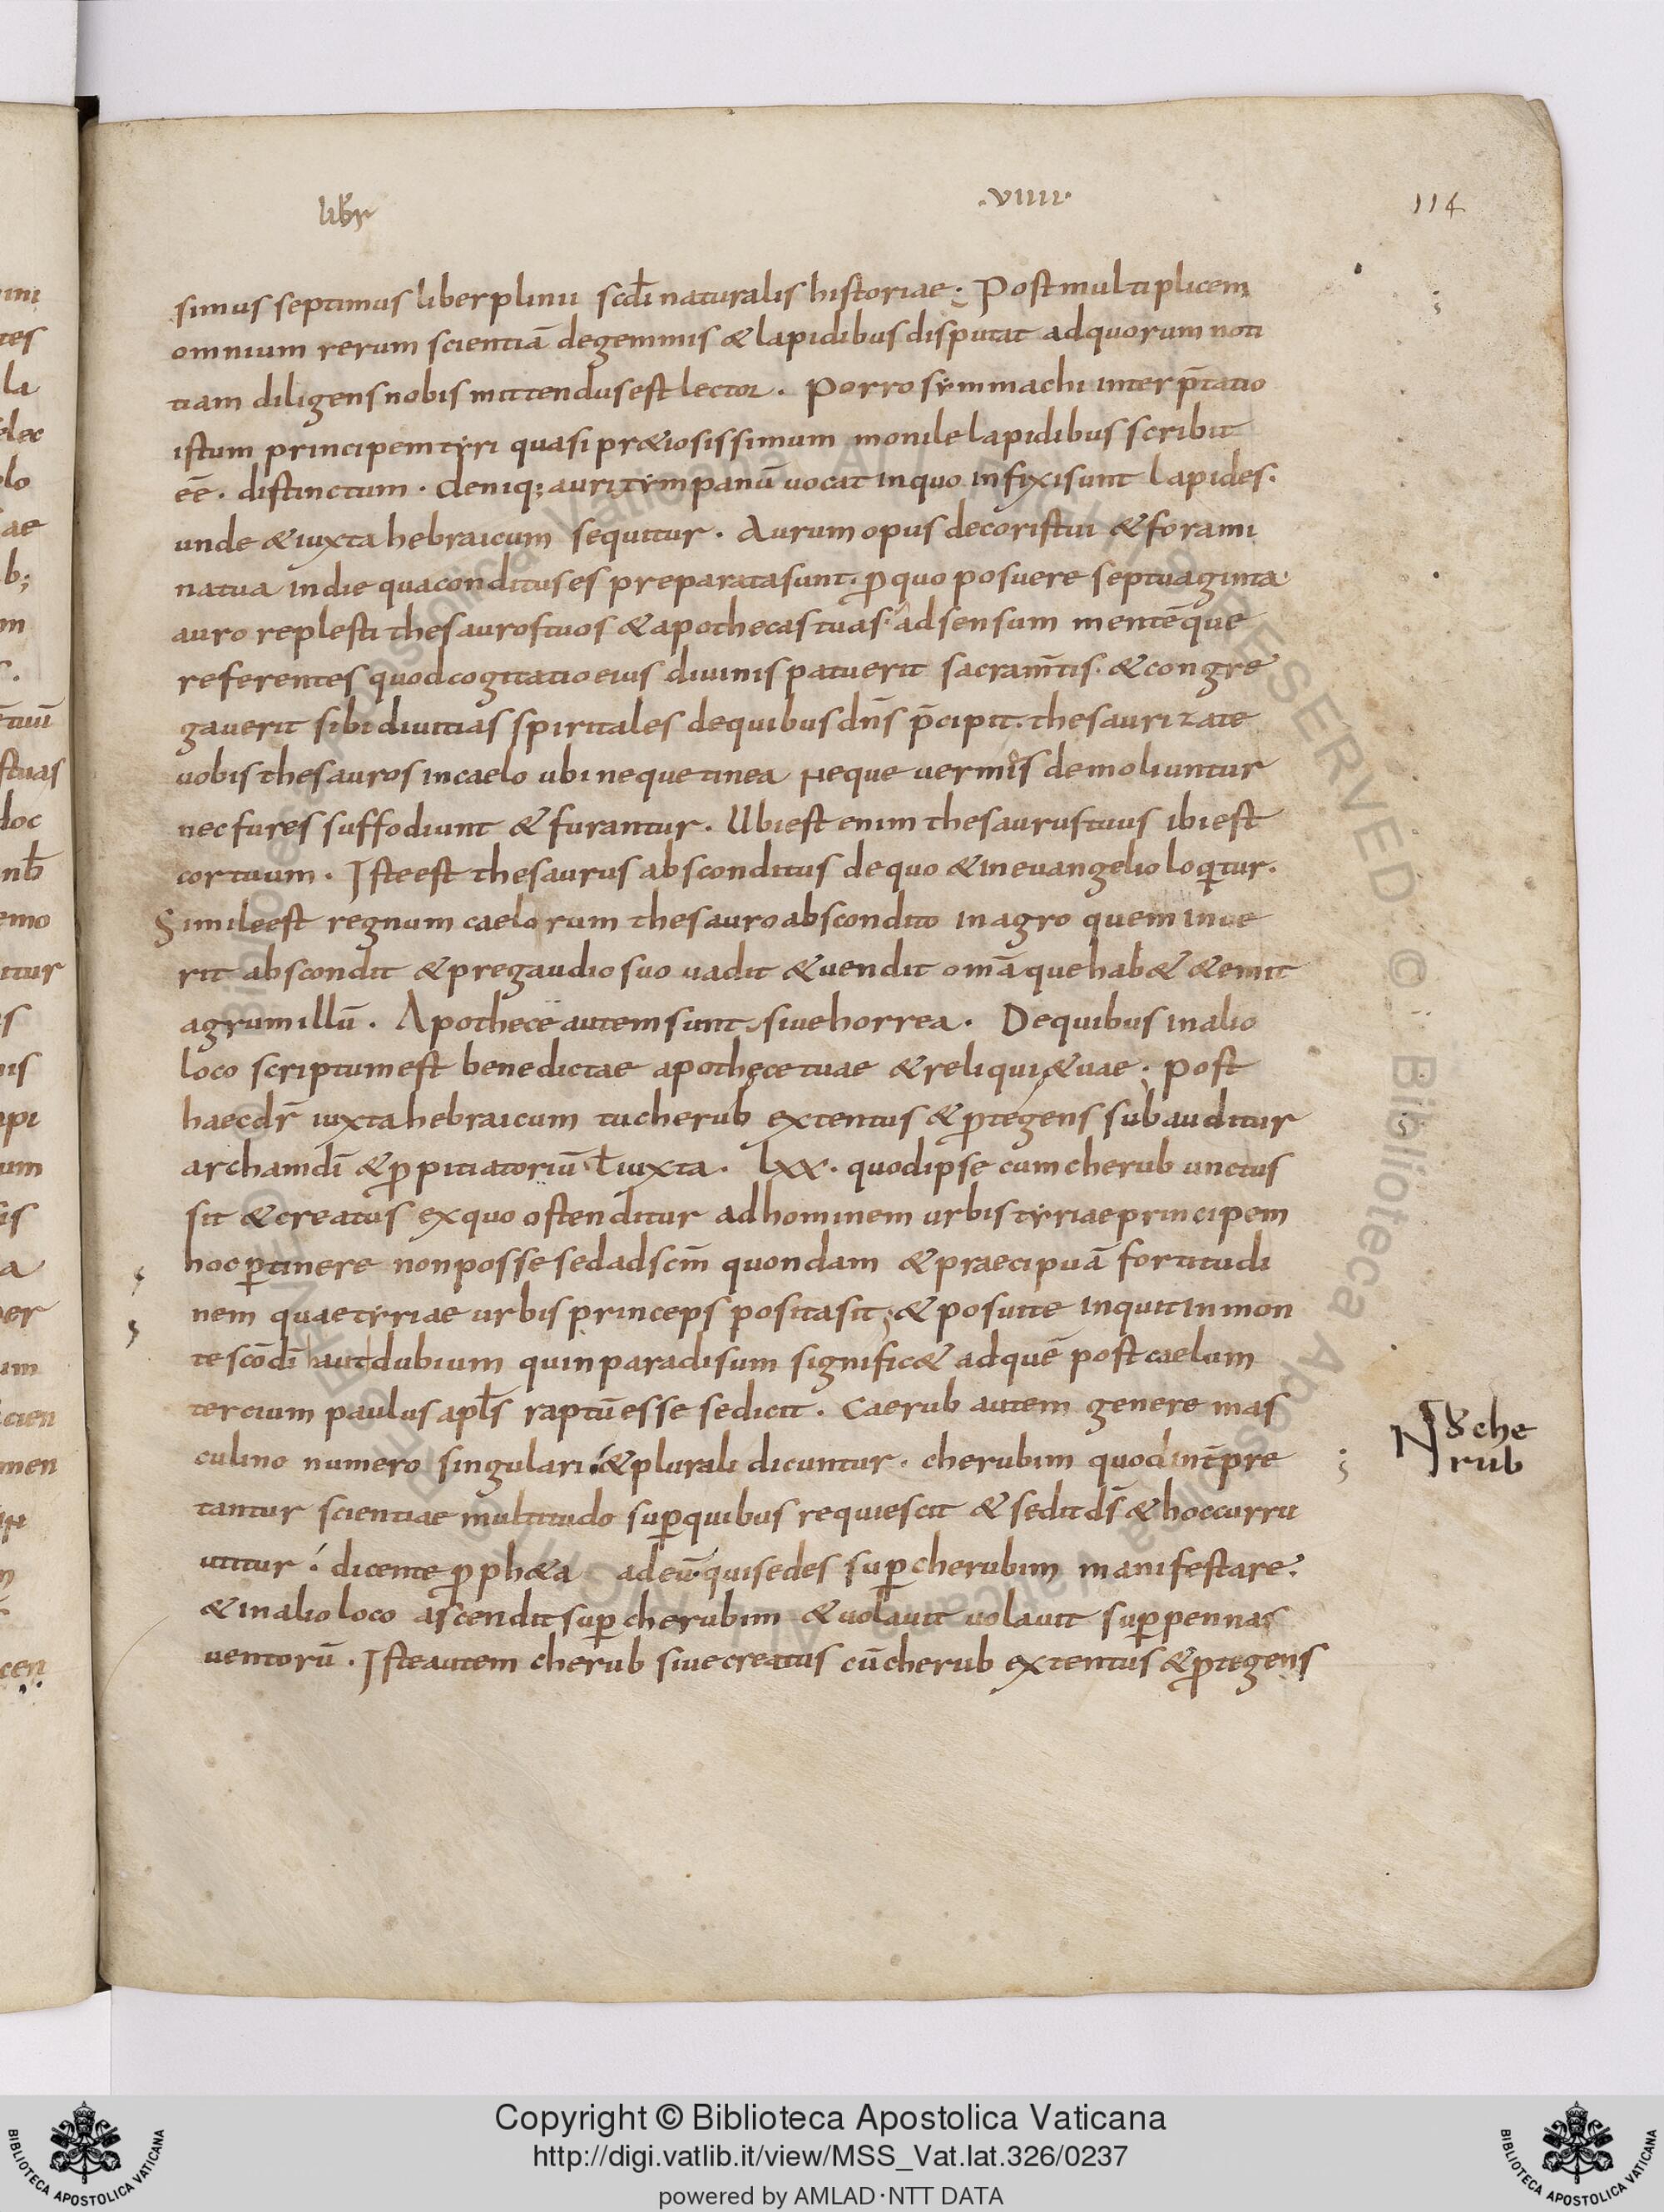 libr
.VIIII.
114
simus septimus liber plinii scđi naturalis historiae; Post multiplicem
omnium rerum scientiā de gemmis & lapidibus disputat ad quorum noti
tiam diligens nobis mittendus est lector. Porro sẏmmachi interp̄tatio
istum principem tẏri quasi pr&iosissimum monile lapidibus scribit
eē. distinctum. deniq; auri tẏmpanū uocat in quo infixi sunt lapides.
unde & iuxta hebraicum sequitur. Aurum opus decoris tui & forami
na tua in die qua conditus es preparata sunt. ꝓ quo posuere septuaginta
auro replesti thesauros tuos & apothecas tuas. ad sensum mentēque
referentes quod cogitatio eius diuinis patuerit sacram̄tis. & congre
gauerit sibi diuitias spiritales de quibus dn̄s p̄cipit. thesaurizate
uobis thesauros in caelo ubi neque tinea neque uermis demoliuntur
nec fures suffodiunt & furantur. Ubi est enim thesaurus tuus ibi est
cor tuum. Iste est thesaurus absconditus de quo & in euangelio loqitur.
Simile est regnum caelorum thesauro abscondito in agro quem inue
rit abscondit & pre gaudio suo uadit & uendit omā que hab& & emit
agrum illū. Apothece autem sunt siue horrea. De quibus in alio
loco scriptum est benedictae apothece tuae & reliqui&uae; post
haec dr̄ iuxta hebraicum tu cherub extentus & ꝓtegens subauditur
archam dī & ꝓpitiatoriū ł iuxta. lxx. quod ipse cum cherub unctus
sit & creatus ex quo ostenditur ad hominem urbis tẏriae principem
hoc ꝑtinere non posse sed ad scm̄ quondam & praecipuā fortitudi
nem quae tẏriae urbis princeps posita sit; & posui te inquit in mon
te scō dī aut dubium quin paradisum signific& ad quē post caelum
tercium paulus apłs raptū esse se dicit. Caerub autem genere mas
culino numero singulari & plurali dicuntur. cherubim quod int̄pre
tantur scientiae multitudo suꝑ quibus requiescit & sedit ds̄ & hoc curru
utitur. dicente ꝓph&a ad eū qui sedes suꝑ cherubim manifestare.
& in alio loco ascendit suꝑ cherubim & uolauit uolauit suꝑ pennas
uentorū. Iste autem cherub siue creatus cū cherub extentus & ꝓtegens
che
rub
Copyright © Biblioteca Apostolica Vaticana
http://digi.vatlib.it/view/MSS_Vat.lat.326/0237
powered by AMLAD·NTT DATA
BIBLIOTECA APOSTOLICA VATICANA
BIBLIOTECA APOSTOLICA VATICANA